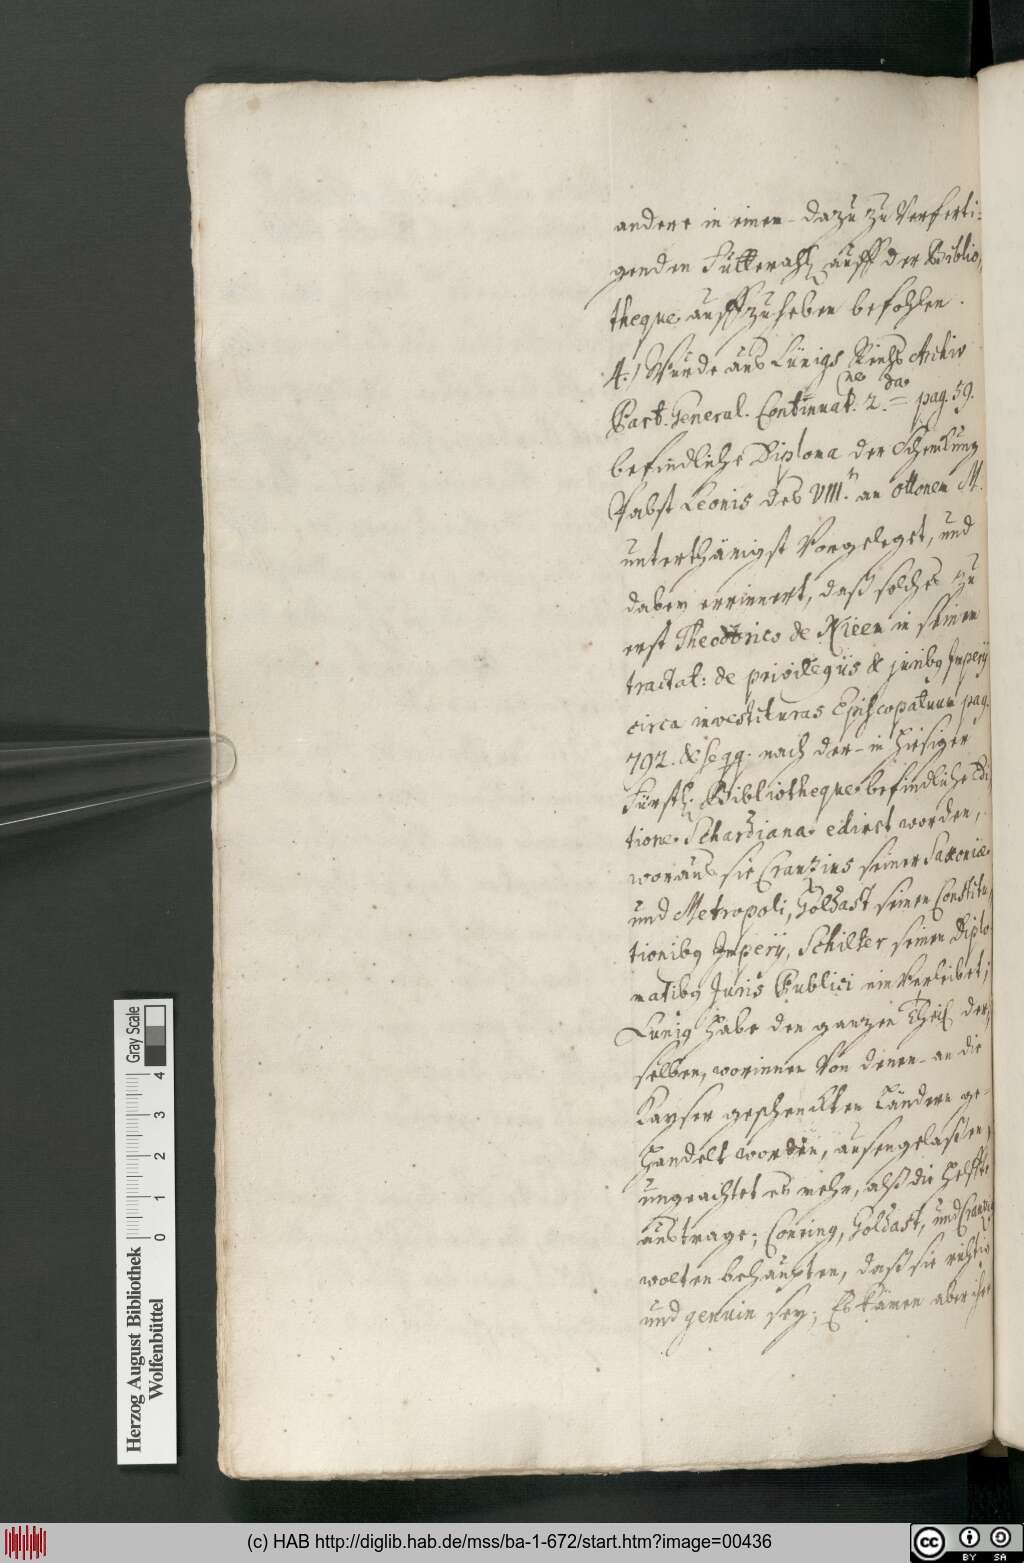 andere in einen dazu zu Verferti-
genden Futterahl auff der Biblio-
theque auffzuheben befohlen.
4.) Wurde aus Lünigs Reichs Archiv
Part. General. Continuat. 2.da pag. 59.
befindliche Diploma der Schenckung
Pabst Leonis des VIII.t an Ottonem M.
unterthänigst Vorgeleget, und
dabey errinnert, daß solches zu
erst Theodorico de Nieen in seinem
tractat: de privilegiis & juribq Imperij
circa investituras Episcopatuum pag.
792. & seqq. nach der- in hiesiger
Fürstl. Bibliotheque befindliche Edi
tione Schardiana edirct worden,
woraus sie Crantzius seiner Saxoniæ
und Metropoli, Goldast seinen Constitu,
tionibq Imperij, Schilter seinen Diplo
matibq Juris Publici ein Verleibet;
Lunig habe den ganzen Theil der,
selben, worinnen Von denen- an die
Kayser geschenckten Ländern ge-
handelt worden, ausengelaßen,
ungeachtet es mehr, alß die helffte
austrage; Conring, Goldast, und Crantzig
wolten behaupten, daß sie richtig
und genuin sey; Es kämen aber ihre
Herzog August Bibliothek
Wolfenbüttel
0 1 2 3 4
Gray Scale
(c) HAB http://diglib.hab.de/mss/ba-1-672/start.htm?image=00436
cc BY SA